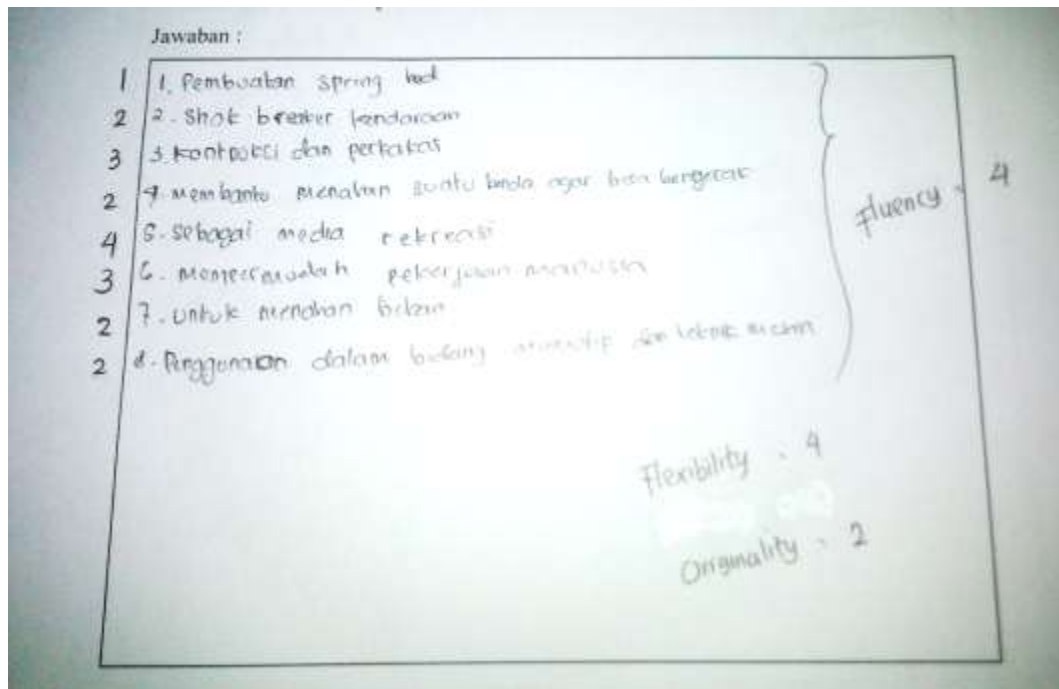 Jawaban :
1 1. Pembuatan spring bed
2 2. Shok breker kendaraan
3 3. kontruksi dan perkakas
2 4. Membantu menahan suatu benda agar bisa bergerak
4 5. sebagai media rekreasi
3 6. pekerjaan manusia
2 7. untuk menahan beban
2 8. Penggunaan dalam bidang dan teknik mesin
Fluency : 4
Flexibility : 4
Originality : 2